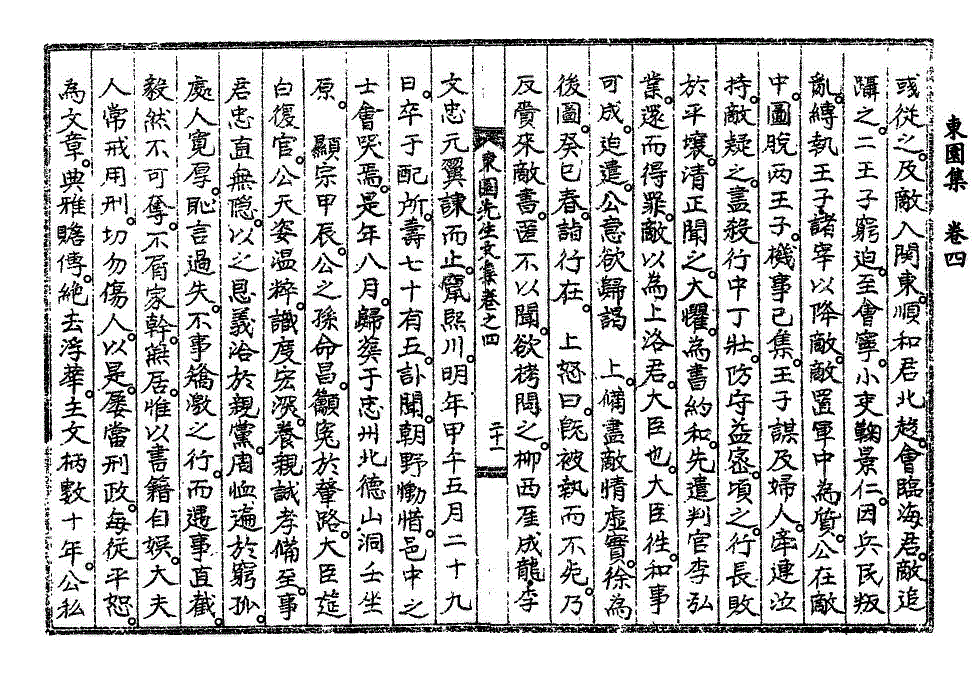 東園集 卷四
或從之及敵入關東順和君北趍會臨海君敵追
躡之二王子窮迫至會寧小吏鞠景仁因兵民叛
亂縛執王子諸宰以降敵敵置軍中爲質公在敵
中圖脫兩王子機事已集王子謀及婦人牽連泣
持敵疑之盡殺行中丁壯防守益密頃之行長敗
於平壤淸正聞之大懼爲書約和先遣判官李弘
業還而得罪敵以爲上洛君大臣也大臣徃和事
可成迫遣公意欲歸謁 上備盡敵情虛實徐爲
後圖癸巳春詣行在 上怒曰旣被執而不死乃
反賫來敵書匿不以聞欲栲問之柳西厓成龍李
東園先生文集卷之四 二十一
文忠元翼諫而止竄熙川明年甲午五月二十九
日卒于配所壽七十有五訃聞朝野慟惜邑中之
士會哭焉是年八月歸葬于忠州北德山洞壬坐
原 顯宗甲辰公之孫命昌籲寃於輦路大臣筵
白復官公天姿温粹識度宏深養親誠孝備至事
君忠直無隐以之恩義洽於親黨周恤遍於窮孤
處人寬厚恥言過失不事矯激之行而遇事直截
毅然不可奪不屑家幹燕居惟以書籍自娛大夫
人常戒用刑切勿傷人以是屡當刑政每從平恕
為文章典雅贍傳絶去浮華主文柄數十年公私